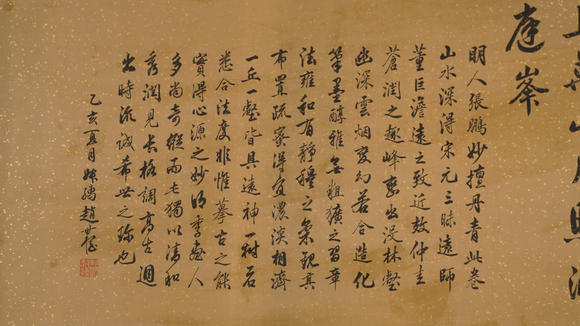 峯
明人張鵬妙擅丹青此卷
山水深得宋元三昧遠師
董巨澹遠之致近效仲圭
蒼潤之趣峰巒出沒林壑
幽深雲烟變幻若合造化
筆墨醇雅無粗獷之習章
法雍和有靜穆之氣觀其
布置疏密得宜濃淡相濟
一丘一壑皆具遠神一樹石
悉合法度非惟摹古之能
實得心源之妙明季畫人
多尚奇縱而獨以清和
秀潤見長格調高古迥
出時流誠希世之珍也
乙亥夏月趙